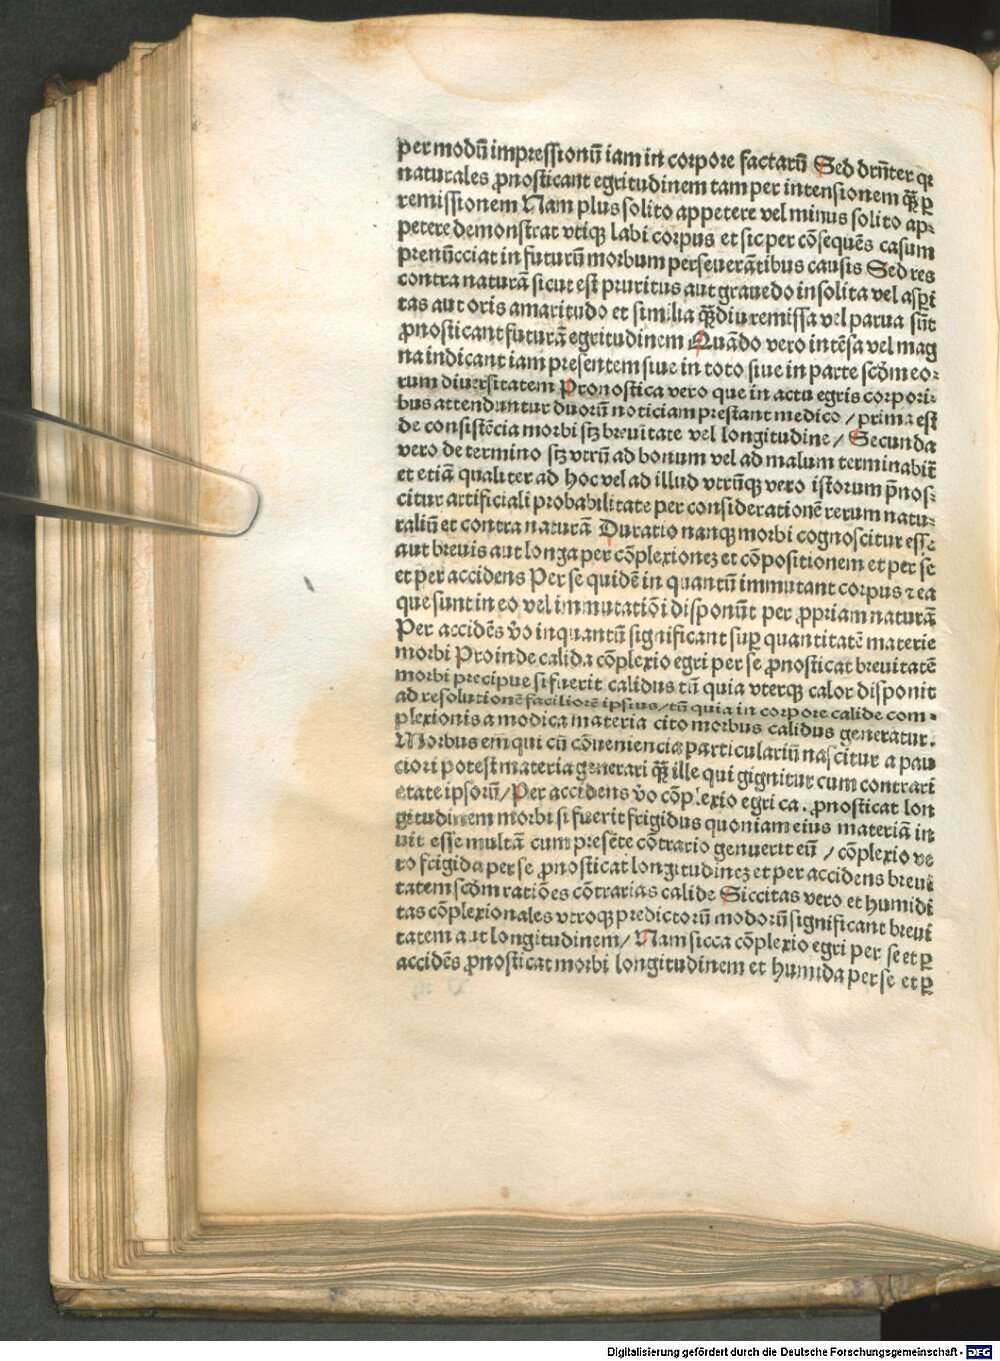 per modū impressionū iam in corpore factarū Sed drn̄ter qꝛ
naturales ꝓnosticant egritudinem tam per intensionem qꝫ̄ ꝑ
remissionem Nam plus solito appetere vel minus solito ap⸗
petere demonstrat vtiqꝫ labi corpus et sic per cōsequēs casum
prenūcciat in futurū morbum perseuerātibus causis Sed res
contra naturā sicut est pruritus aut grauedo insolita vel asperi
tas aut oris amaritudo et similia qꝫ̄diu remissa vel parua sūt
ꝓnosticant futurā egritudinem Quādo vero intēsa vel mag
na indicant iam presentem siue in toto siue in parte scd̄m eo⸗
rum diuersitatem Pronostica vero que in actu egris corpori⸗
bus attenduntur duorū noticiam prestant medico / prima est
de consistēcia morbi sꝫ breuitate vel longitudine / Secunda
vero de termino sꝫ vtrū ad bonum vel ad malum terminabit̄
et etiā qualiter ad hoc vel ad illud vtrūqꝫ vero istorum p̄nos⸗
citur artificiali probabilitate per considerationē rerum natu⸗
raliū et contra naturā Duratio nanqꝫ morbi cognoscitur esse
aut breuis aut longa per cōplexionez et cōpositionem et per se
et per accidens Per se quidē in quantū immutant corpus ⁊ ea
que sunt in eo vel immutatiōi disponūt per ꝓpriam naturā
Per accidēs v̄o inquantū significant suꝑ quantitatē materie
morbi Proinde calida cōplexio egri per se ꝓnosticat breuitatē
morbi precipue si fuerit calidus tū quia vterqꝫ calor disponit
ad resolutionē faciliorē ipsius / tū quia in corpore calide com⸗
plexionis a modica materia cito morbus calidus generatur.
Morbus em̄ qui cū cōueniencia particulariū nascitur a pau
ciori potest materia generari qꝫ̄ ille qui gignitur cum contrari
etate ipsorū / Per accidens v̄o cōplexio egri ca. ꝓnosticat lon
gitudinem morbi si fuerit frigidus quoniam eius materiā in
uit esse multā cum presēte cōtrario genuerit eū / cōplexio ve
ro frigida per se ꝓnosticat longitudinez et per accidens breui
tatem scd̄m ratiōes cōtrarias calide Siccitas vero et humidi
tas cōplexionales vtroqꝫ predictorū modorū significant breui
tatem aut longitudinem / Nam sicca cōplexio egri per se et ꝑ
accidēs ꝓnosticat morbi longitudinem et humida per se et ꝑ
Digitalisierung gefördert durch die Deutsche Forschungsgemeinschaft - DFG